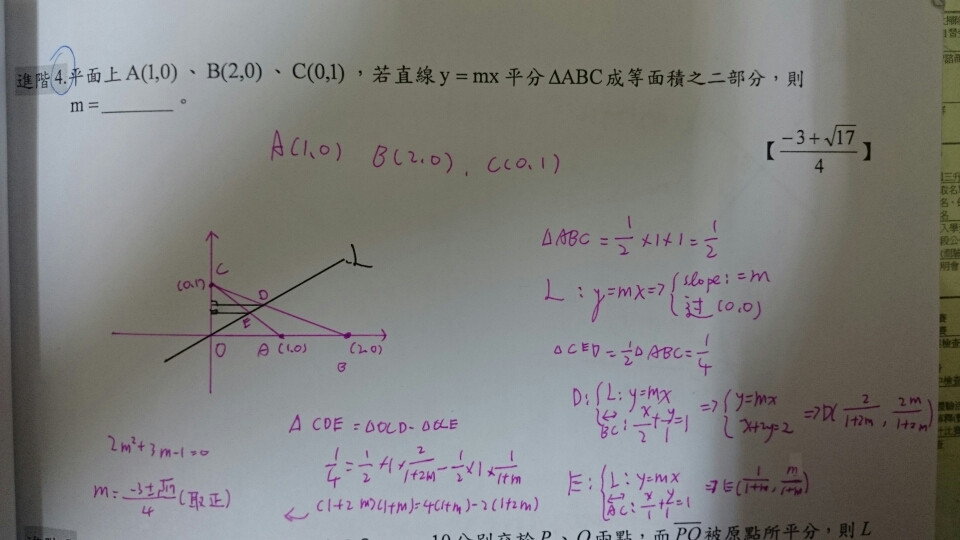 進階 4. 平面上 A(1,0) 、 B(2,0) 、 C(0,1) ，若直線 y = mx 平分 ΔABC 成等面積之二部分，則
m = ________ 。
【 (-3+√17)/4 】
A(1,0) B(2,0) , C(0,1)
L
C
(0,1)
D
E
O A (1,0) (2,0)
B
ΔABC = 1/2 ×1×1 = 1/2
L : y=mx => { slope: =m
过 (0,0)
ΔCED = 1/2 ΔABC = 1/4
D: { L: y=mx
BC: x/2 + y/1 = 1
=> { y=mx
x+2y=2
=> D( 2/(1+2m) , 2m/(1+2m) )
E: { L: y=mx
AC: x/1 + y/1 = 1
=> E( 1/(1+m) , m/(1+m) )
Δ CDE = ΔOCD - ΔOCE
1/4 = 1/2 ×1× 2/(1+2m) - 1/2 ×1× 1/(1+m)
(1+2m)(1+m) = 4(1+m) - 2(1+2m)
2m²+3m-1=0
m = (-3±√17)/4 (取正)
10 分別交於 P 、 Q 兩點，而 PQ 被原點所平分，則 L